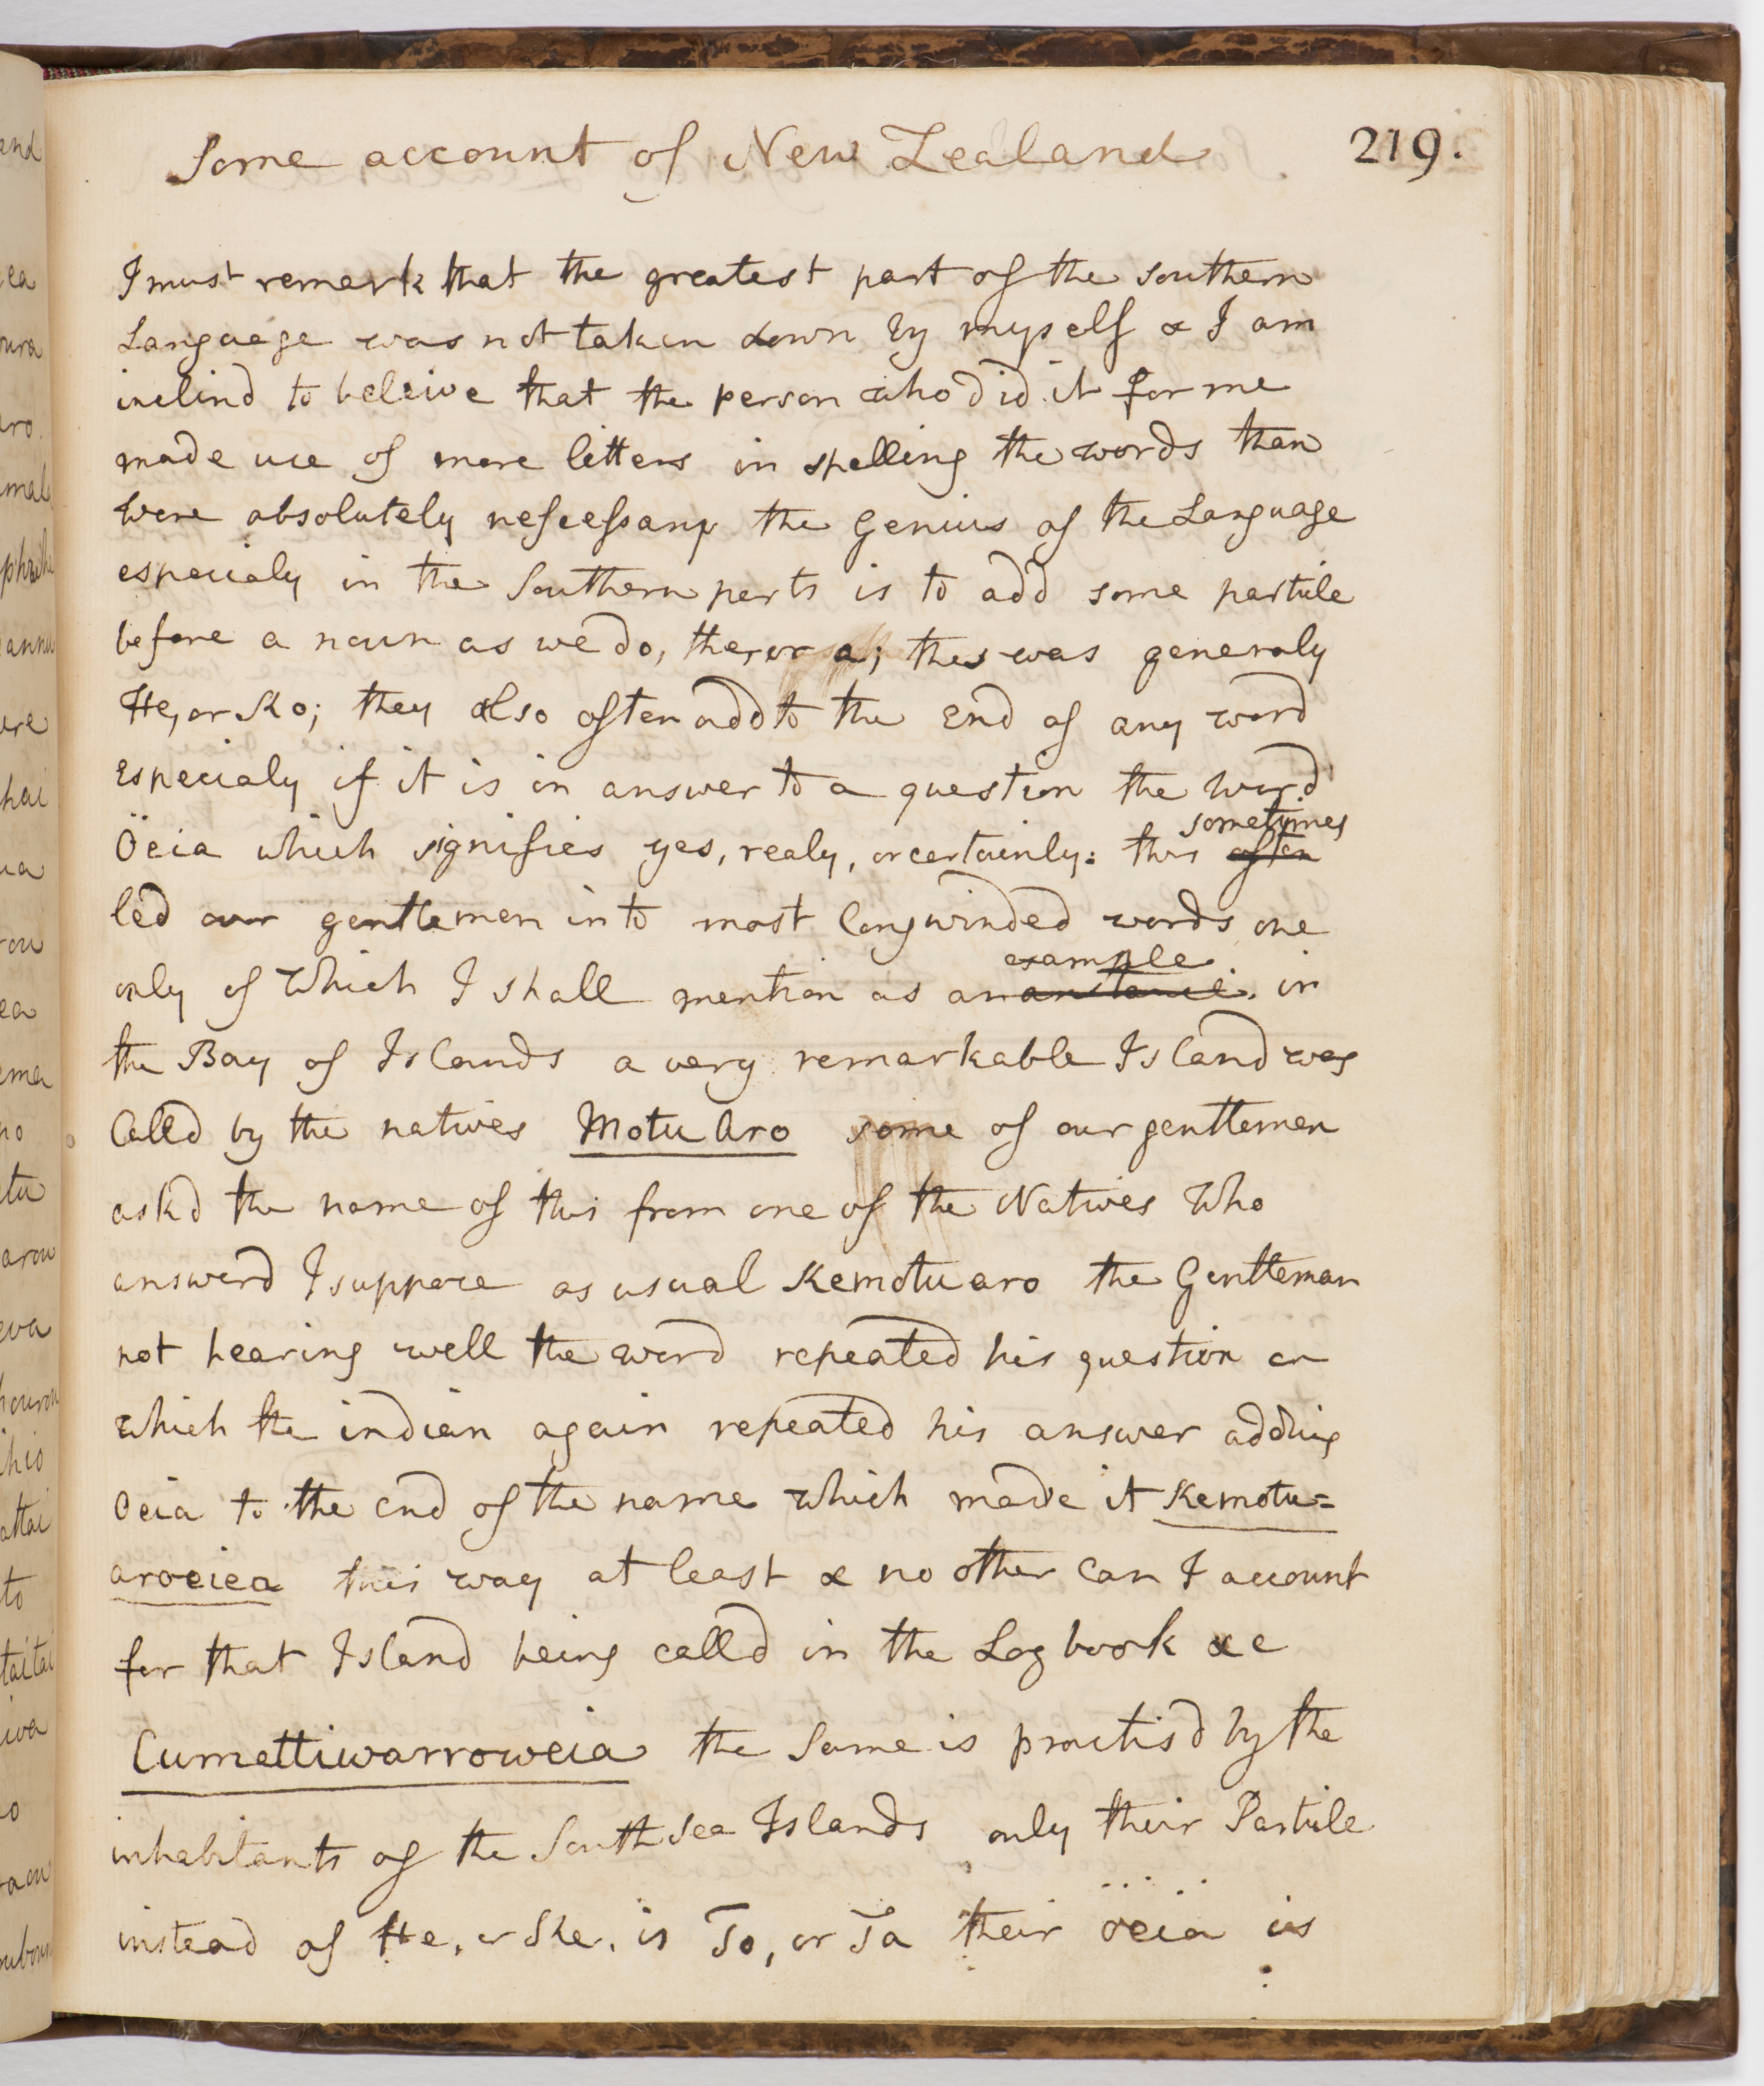 Some account of New Zealand 219.
I must remark that the greatest part of the southern
Language was not taken down by myself & I am
inclind to beleive that the person who did it for me
made use of more letters in spelling the words than
were absolutely nescessary the Genius of the Language
especialy in the Southern parts is to add some particle
before a noun as we do, the, or a; this was generaly
He, or Ko; they also often add to the End of any word
Especialy if it is in answer to a question the word
Öeia which signifies yes, realy, or certainly: this often sometimes
led our gentlemen into most longwinded words one
only of which I shall mention as an example in
the Bay of Islands a very remarkable Island was
Calld by the natives Motu Aro some of our gentlemen
askd the name of this from one of the Natives Who
answerd I suppose as usual Kemotuaro the Gentleman
not hearing well the word repeated his question on
which the indian again repeated his answer adding
Oeia to the end of the name which made it Kemotu=
aroeiea this way at least & no other can I account
for that Island being calld in the Log book &c
Cumettiwarroweia the Same is practisd by the
inhabitants of the South Sea Islands only their Particle
instead of He, or Ke, is To, or Ta their oeia is